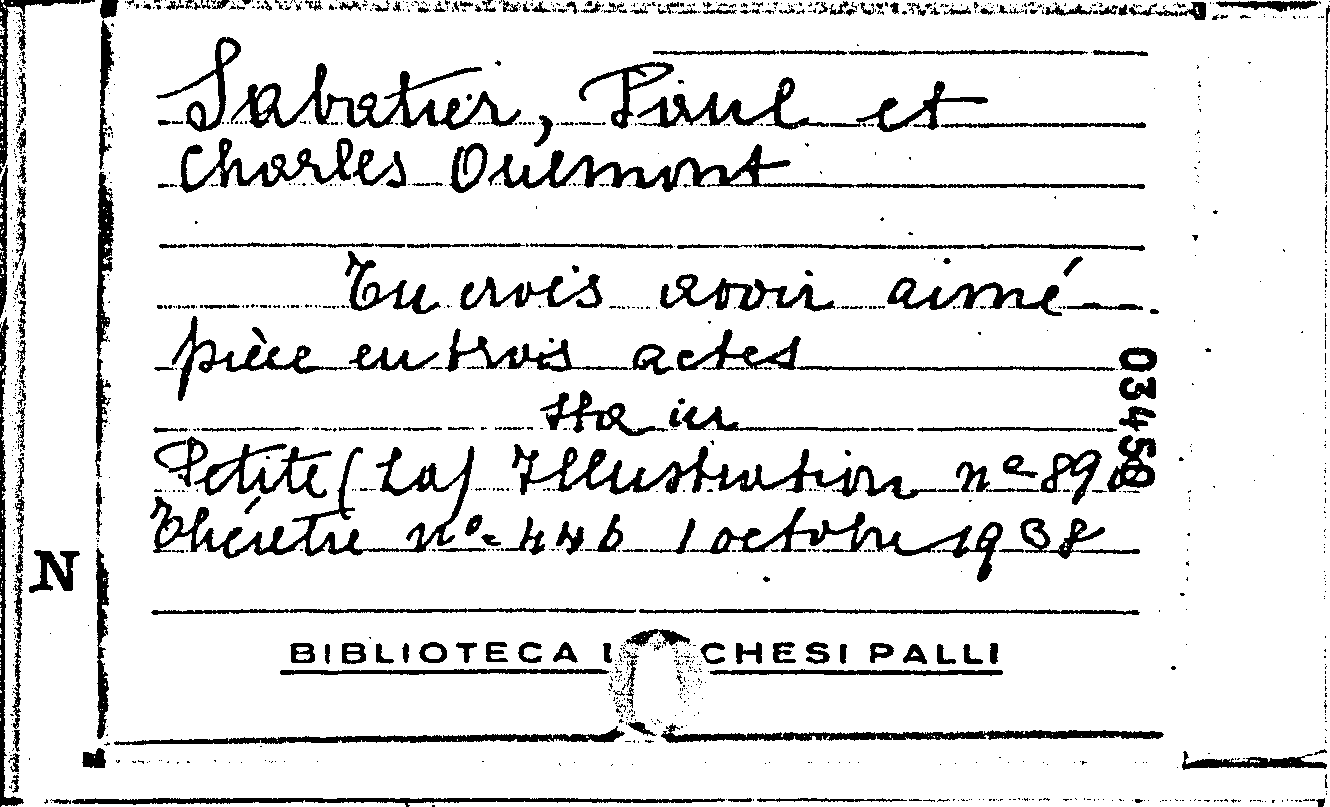 Sabatier, Paul et
Charles Oulmont
Tu crois avoir aimé
pièce en trois actes
Sta in
Petite (La) Illustration nº 89
Théâtre nº 446 1 octobre 1938
03458
N
BIBLIOTECA L CHESI PALLI